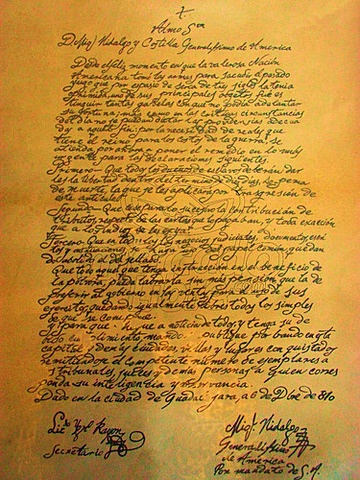 Almo Sor
De Migl Hidalgo y Costilla Generalíssimo de America
Desde el feliz momento en que la valerosa Nación
Americana tomó las armas para sacudir el pesado
yugo que por espacio de
oprimida, uno de sus principales objetos fué es
tinguir tantas gabelas con que no podía adelantar
su fortuna; mas como en las criticas circunstancias
del día no se puedan dictar las providencias adecua
das a aquel fin, por la necesidad de reales que
tiene el reino para los costos de la guerra, se
atienda por ahora a poner el remedio en lo mas
urgente por las declaraciones siguientes.
Primera- Que todos los dueños de esclavos deberán dar
les la libertad dentro del término de diez días, so pena
de muerte, la que se les aplicará por transgresión de
este artículo.
Segunda- Que cese para lo sucesivo la contribución de
tributos, respecto de las castas que lo pagaban, y toda exacción
que a los indios se les exija.
Tercero- Que en todos los negocios judiciales, documentos, escri
turas y actuaciones, se haga uso de papel común quedan
do abolido el del sellado.
Que todo aquel que tenga instrucción en el beneficio de
la pólvora, pueda labrarla, sin mas pensión que la de
preferir al gobierno en las ventas para el uso de sus
ejércitos, quedando igualmente libres todos los simples
de que se compone.
Y para que llegue a noticia de todos y tenga su de
bido cumplimiento, mando se publique por bando en esta
capital y demás ciudades, villas y lugares conquistados
remitiendose el competente número de ejemplares a
tribunales, jueces y demás personas a quien corres
ponda su inteligencia y observancia.
Dado en la ciudad de Guadalajara, a 6 de Dbre de 810
Licdo Ygno Rayon
Secretario
Migl Hidalgo
Generalíssimo
de America
Por mandato de S.A.